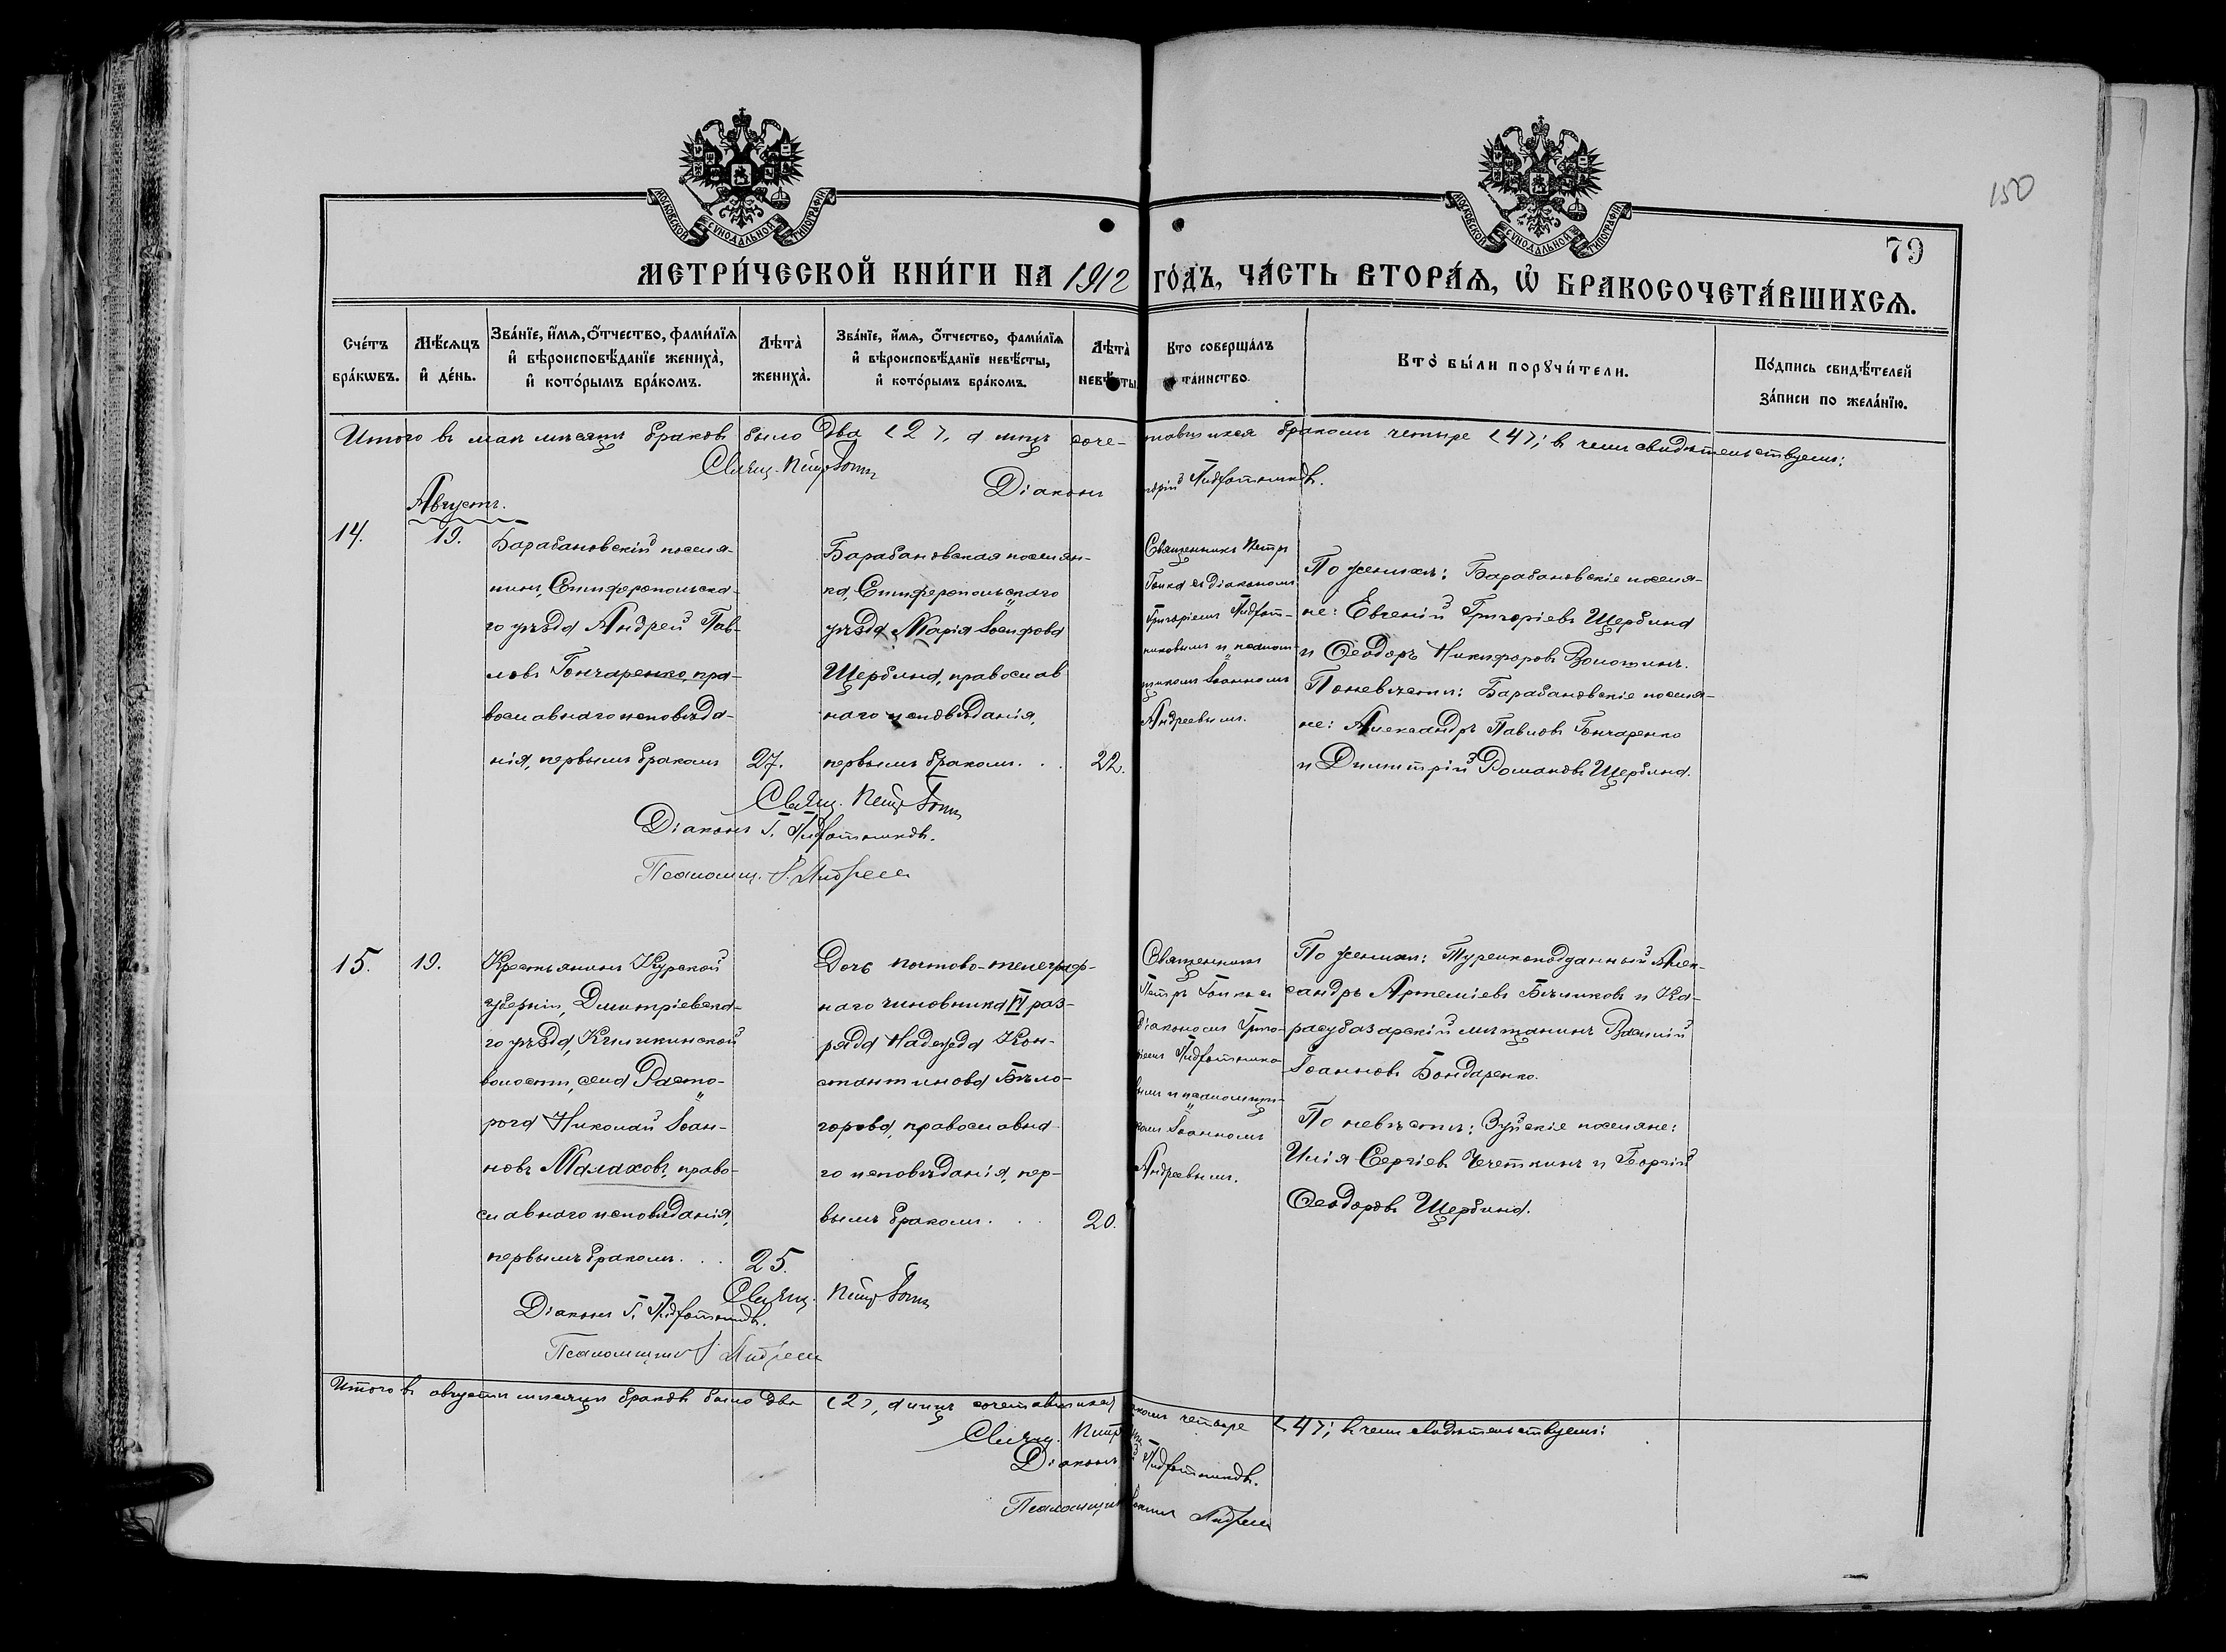 150
79
МОСКОВСКОЙ СУНОДАЛЬНОЙ ТИПОГРАФІИ
МОСКОВСКОЙ СУНОДАЛЬНОЙ ТИПОГРАФІИ
МЕТРИ́ЧЕСКОЙ КНИ́ГИ НА 1912 ГО́ДЪ, ЧА́СТЬ ВТОРА́Ѧ, Ѡ БРАКОСОЧЕТА́ВШИХСѦ.
Сче́тъ бра́кѡвъ.
Мѣ́сяцъ и де́нь.
Зва́нїе, и́мя, о́тчество, фами́лїя
и вѣроисповѣ́данїе жениха̀,
и кото́рымъ бра́комъ.
Лѣта̀ жениха̀.
Зва́нїе, и́мя, о́тчество, фами́лїя
и вѣроисповѣ́данїе невѣ́сты,
и кото́рымъ бра́комъ.
Лѣта̀ невѣ́сты
Кто соверша́лъ
та́инство.
Кто̀ бы́ли порꙋчи́тели.
По́дпись свидѣ́телей
за́писи по жела́нїю.
Итого въ маѣ мѣсяцѣ браковъ было два (2), а лицъ соче-
тавшихся бракомъ четыре (4); въ чемъ свидѣтельствуемъ:
Свящ. Петръ Гопка
Діаконъ
Августъ.
14.
19.
Барабановскій поселя-
нинъ, Симферопольска-
го уѣзда Андрей Пав-
ловъ Гончаренко, пра-
вославнаго исповѣда-
нія, первымъ бракомъ
27.
Барабановская поселян-
ка, Симферопольскаго
уѣзда Марія Іосифова
Щербина, православ
наго исповѣданія,
первымъ бракомъ. .
22.
Священникъ Петръ
Гопка съ діакономъ
Григоріемъ
и псалом-
щикомъ Іоанномъ
Андреевымъ.
По женихѣ: Барабановскіе поселя-
не: Евгеній Григоріевъ Щербина
и Ѳеодоръ Никифоровъ Золотинъ.
По невѣстѣ: Барабановскіе поселя-
не: Александръ Павловъ Гончаренко
и Димитрій Романовъ Щербина.
Свящ. Петръ Гопка
Діаконъ Г.
Псаломщ. І. Андреев
15.
19.
Крестьянинъ Курской
губерніи, Димитріевска-
го уѣзда,
волости, села Расто-
рога Николай Іоан-
новъ Малаховъ, право-
славнаго исповѣданія,
первымъ бракомъ. . .
25.
Дочь почтово-телеграф-
наго чиновника VI раз-
ряда Надежда Кон-
стантинова Бѣло-
горова, православна
го исповѣданія, пер-
вымъ бракомъ. . .
20.
Священникъ
Петръ Гопка съ
діакономъ Григо-
ріемъ
вымъ и псаломщи-
комъ Іоанномъ
Андреевымъ.
По женихѣ: Турецкоподданный Алек-
сандръ Артеміевъ Бѣликовъ и Ка-
расубазарскій мѣщанинъ Василій
Іоанновъ Бондаренко.
По невѣстѣ: Зуйскіе поселяне:
Илія Сергіевъ Чечеткинъ и Георгій
Ѳеодоровъ Щербина.
Свящ. Петръ Гопка
Діаконъ Г.
Псаломщикъ І. Андреев
Итого въ августѣ мѣсяцѣ браковъ было два (2), а лицъ сочетавшихся
комъ четыре (4); въ чемъ свидѣтельствуемъ:
Свящ. Петръ
Діаконъ
Псаломщикъ Іоаннъ Андреев